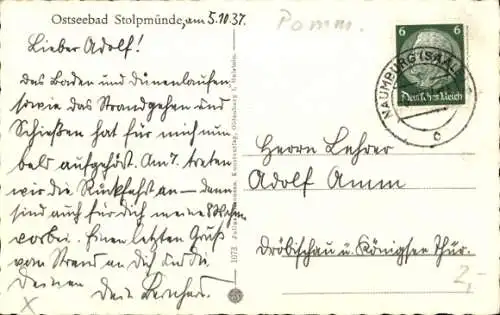 Ostseebad Stolpmünde, am 5.10.37.
Pomm.
Lieber Adolf!
Das Baden und Dünenlaufen,
sowie das Strandgehen und
Schießen hat für mich nun
bald aufgehört. Am 7. treten
wir die Rückfahrt an – dann
sind auch für dich meine
vorbei. Einen letzten Gruß
vom Strand an dich und die
Deinen
Dein Bernhard.
6 6
Deutsches Reich
NAUMBURG (SAALE)
c
Herrn Lehrer
Adolf Amm
Dröbischau ü. Königsee Thür.
2,-
1073